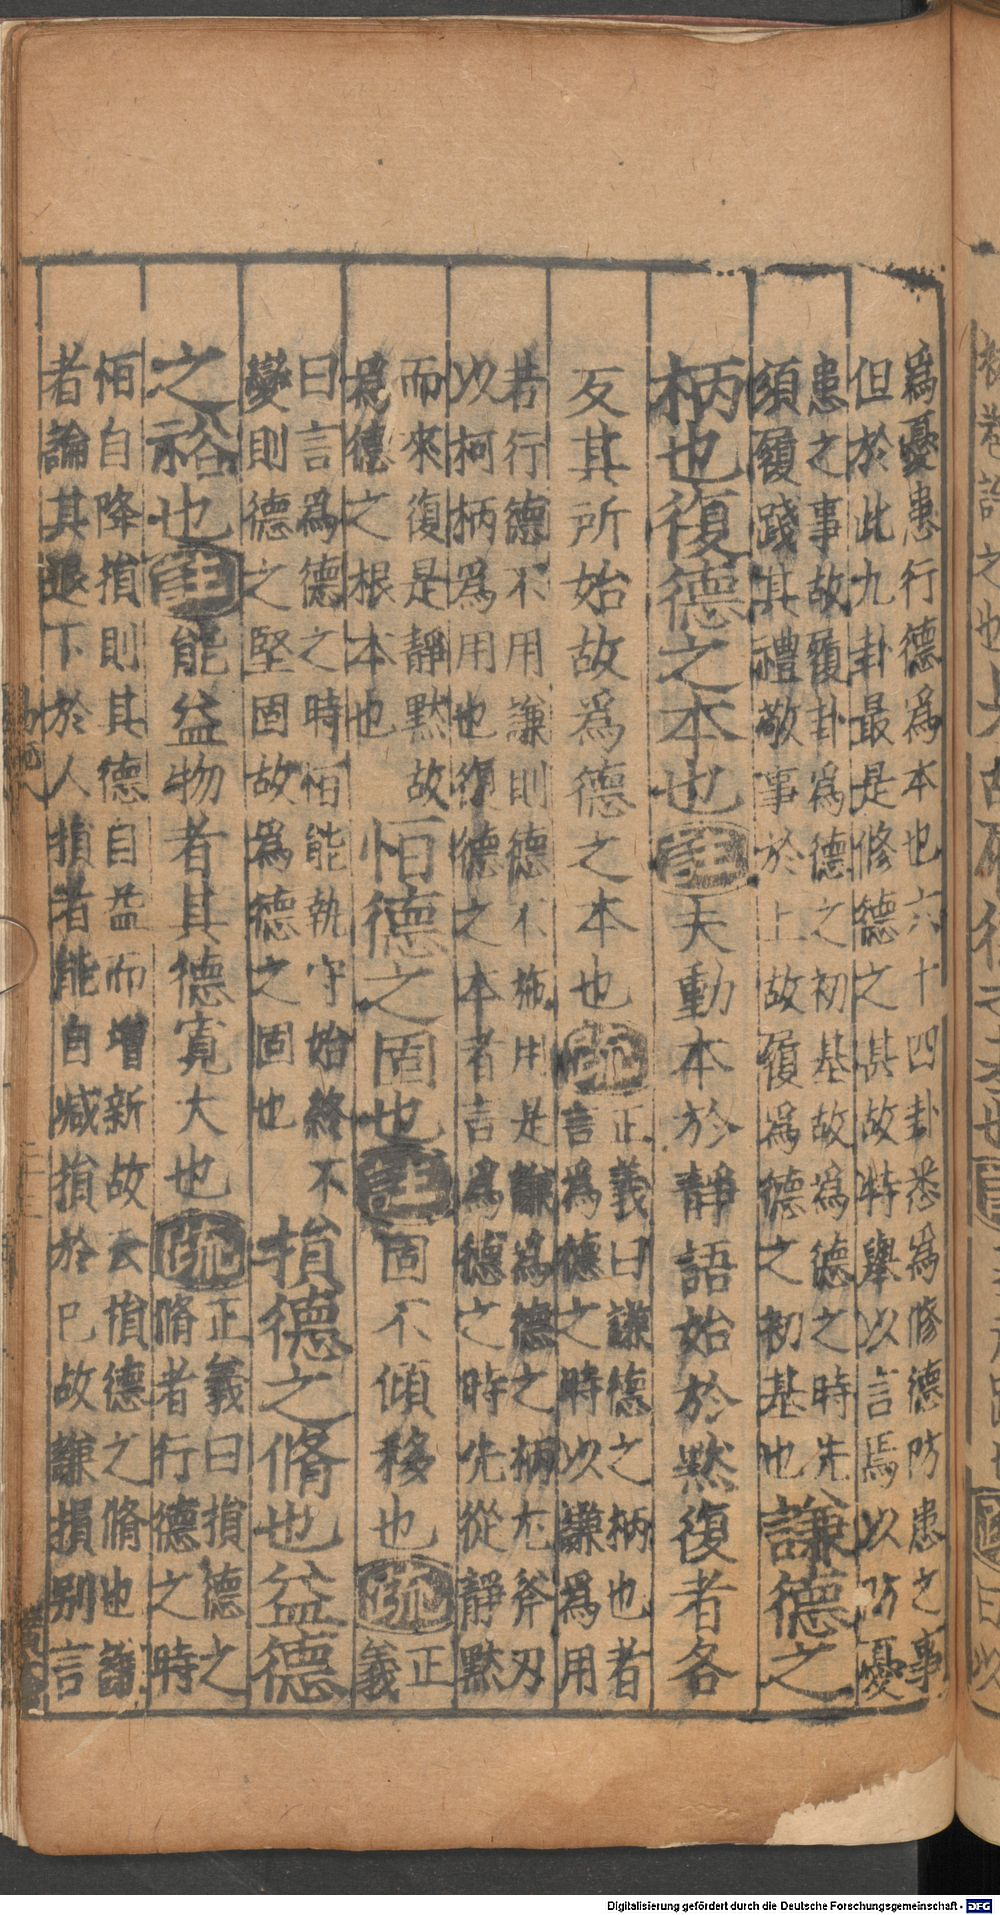 為憂患行德為本也六十四卦悉為修德防患之事
但於此九卦最是修德之甚故特舉以言焉以防憂
患之事故履卦為德之初基故為德之時先
須履踐其禮敬事於上故履為德之初基也
謙德之
柄也復德之本也
註
夫動本於靜語始於黙復者各
反其所始故為德之本也
疏
正義曰謙德之柄也者
言為德之時以謙為用
若行德不用謙則德不施用是謙為德之柄尤斧刃
以柯柄為用也復德之本者言為德之時先從靜黙
而來復是靜黙故
為德之根本也
恒德之固也
註
固不傾移也
疏
正
義
曰言為德之時恒能執守始終不
變則德之堅固故為德之固也
損德之脩也益德
之裕也
註
能益物者其德寛大也
疏
正義曰損德之
脩者行德之時
恒自降損則其德自益而增新故云損德之脩也謙
者論其退下於人損者能自减損於已故謙損别言
Digitalisierung gefördert durch die Deutsche Forschungsgemeinschaft - DFG